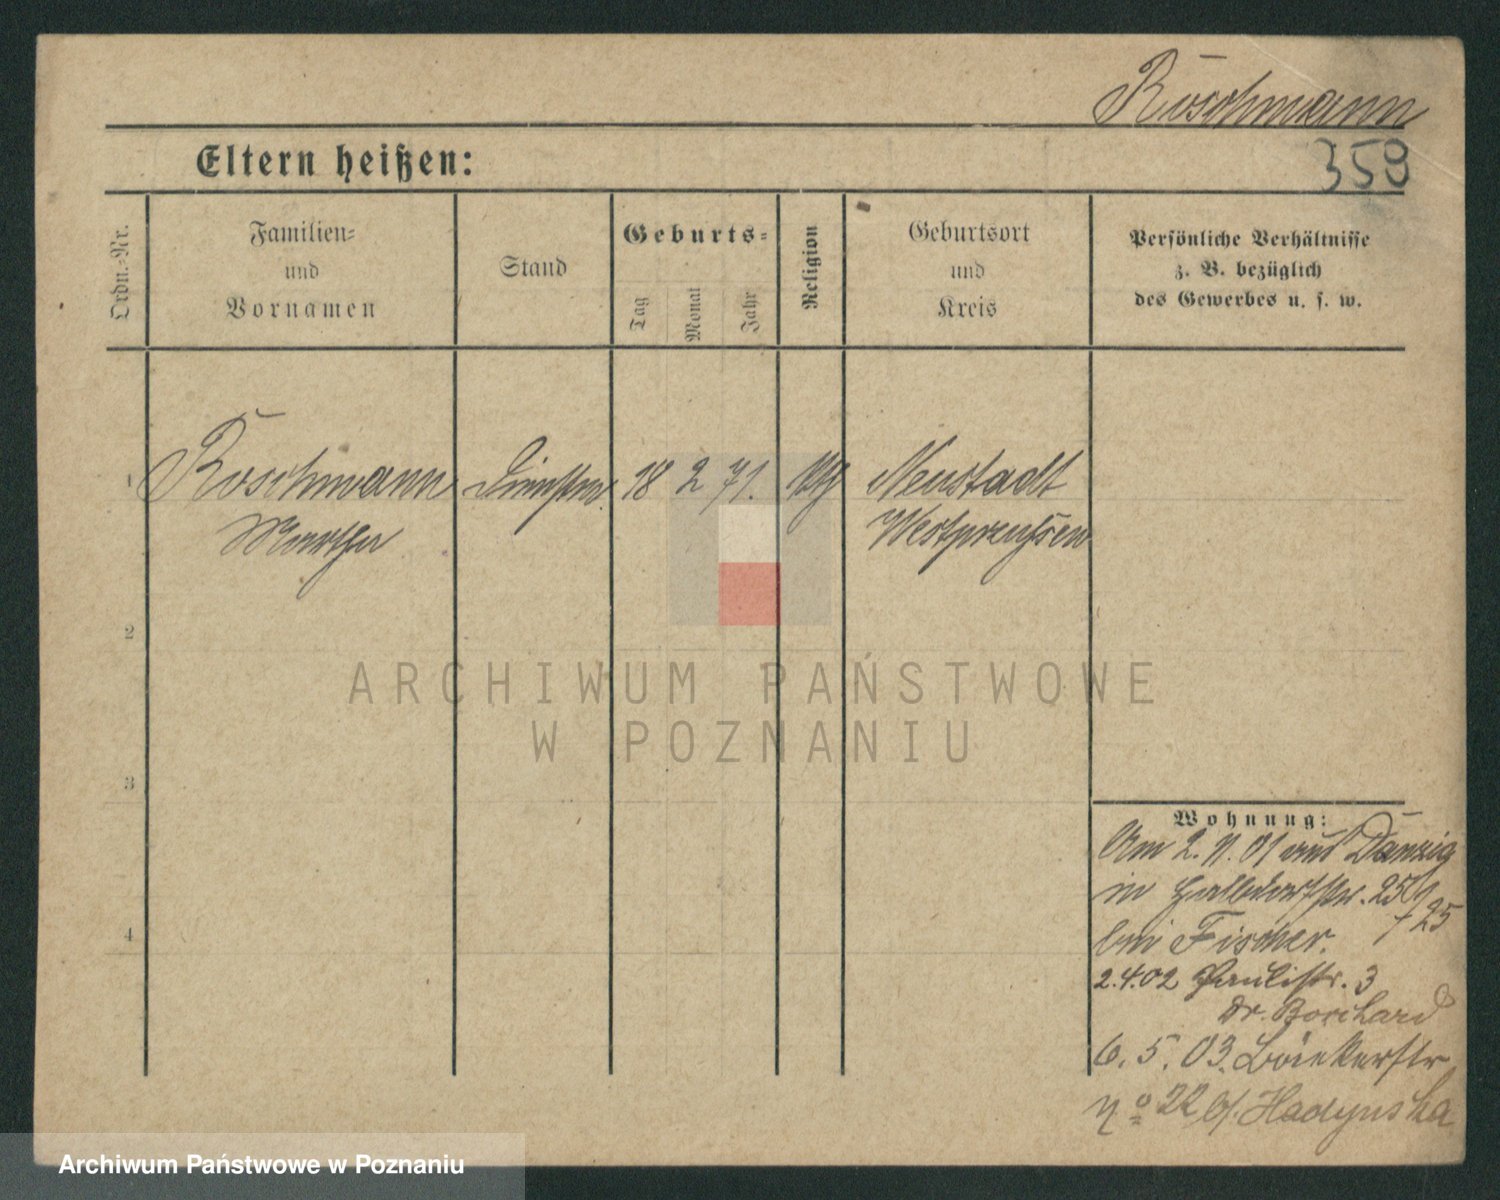 Roschmann
359
Eltern heißen:
Ordn.-Nr.
Familien-
und
Vornamen
Stand
Geburts-
Tag
Monat
Jahr
Religion
Geburtsort
und
Kreis
Persönliche Verhältnisse
z. B. bezüglich
des Gewerbes u. s. w.
1 Roschmann 18 2 71. Neustadt
Martha Westpreußen
2
3
4
ARCHIWUM PAŃSTWOWE
W POZNANIU
Wohnung:
Am 2. 11. 01 aus Danzig
in Halbdorfstr. 25
bei Fischer. 25
2.4.02 Paulistr. 3
Dr. Borchard
6. 5. 03. Bäckerstr
No 22 b/. Hadynska
Archiwum Państwowe w Poznaniu